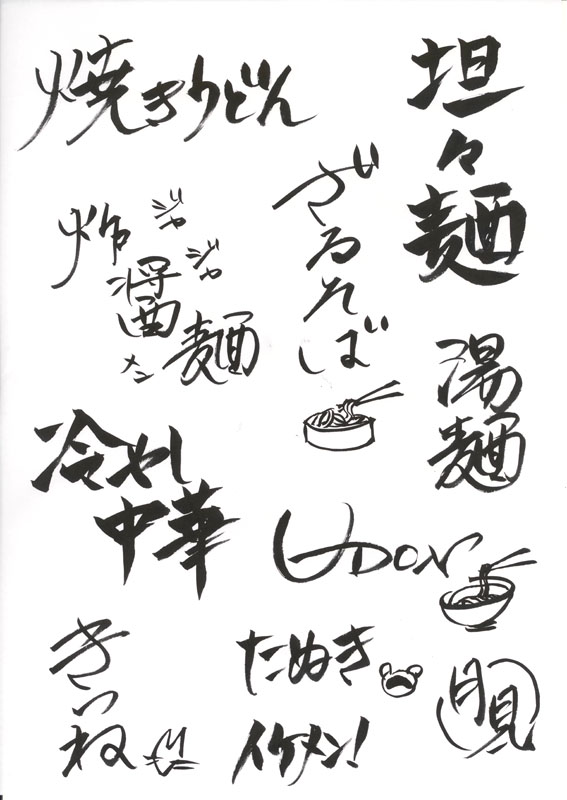 焼きうどん
坦々麺
ざるそば
ジャ
ジャ
炸醤麺
メン
湯麺
冷やし
中華
UDON
きつね
たぬき
イケメン!
月見